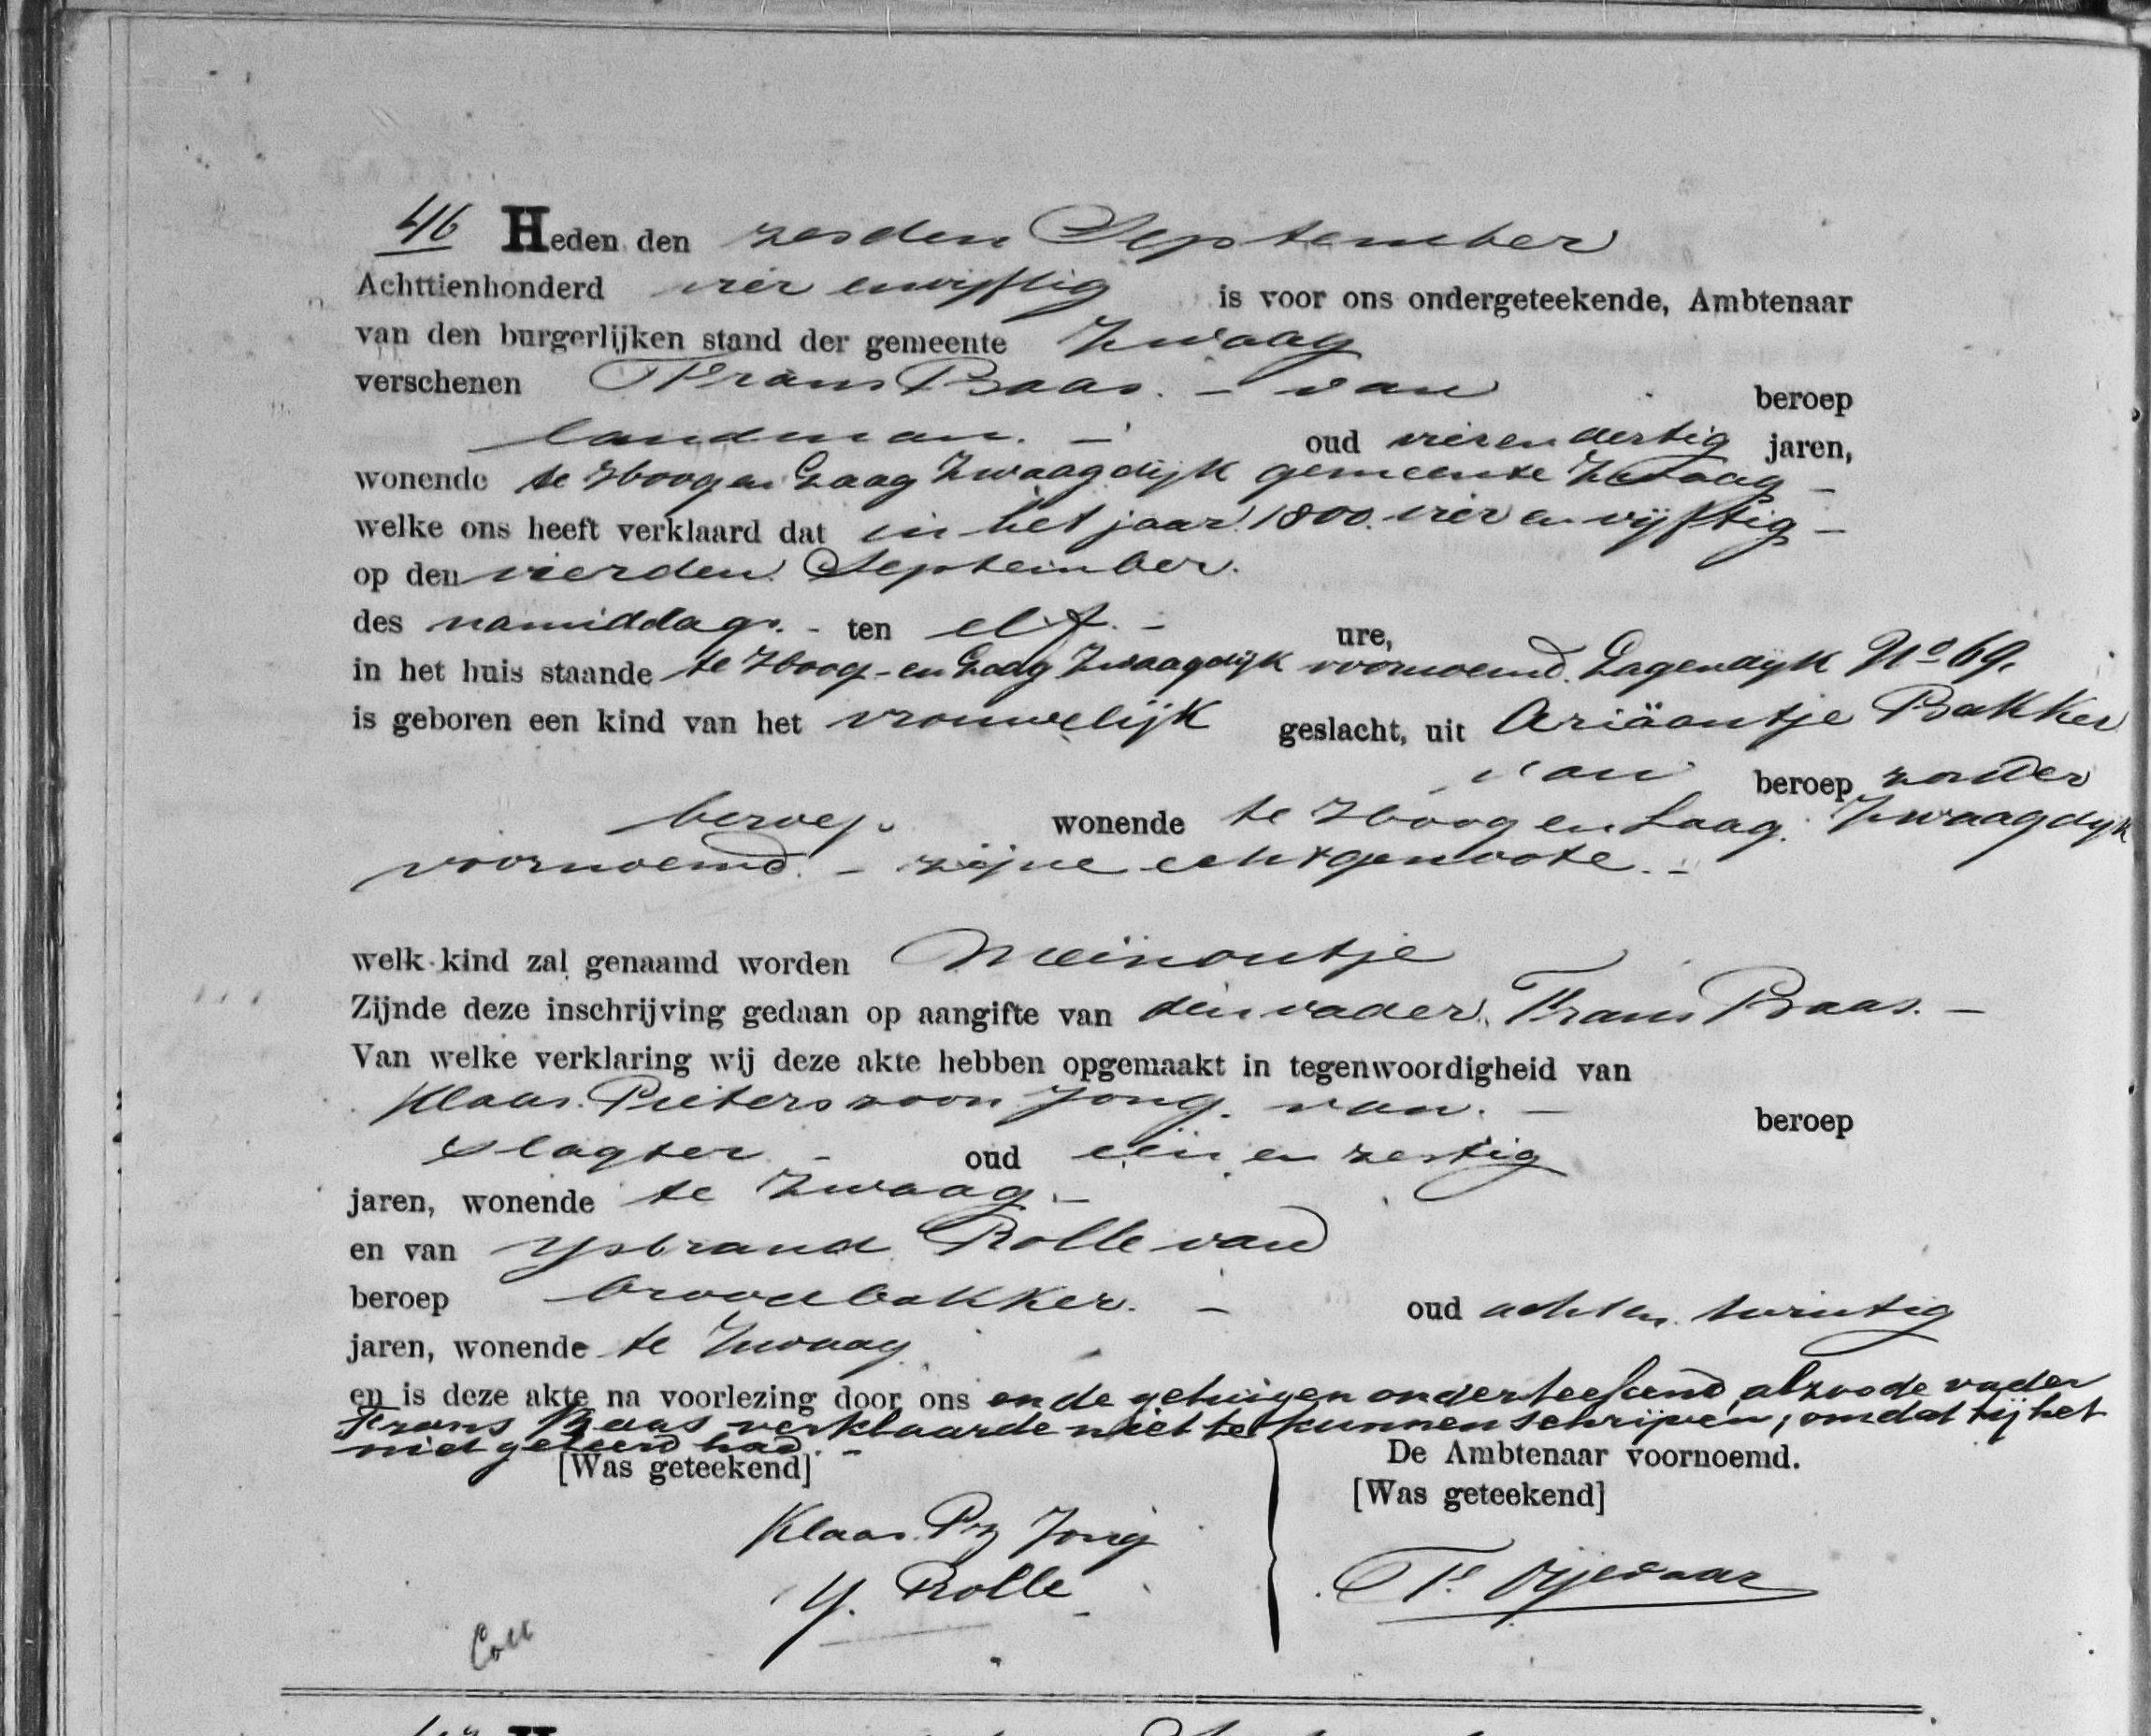 46 Heden den zesden September
Achttienhonderd vier en vijftig is voor ons ondergeteekende, Ambtenaar
van den burgerlijken stand der gemeente Zwaag
verschenen Frans Baas. - van beroep
landman. - oud vier en dertig jaren,
wonende te Hoog en Laag Zwaagdijk gemeente Zwaag -
welke ons heeft verklaard dat in het jaar 1800 vier en vijftig -
op den vierden September.
des namiddags. - ten elf. - ure,
in het huis staande te Hoog- en Laag Zwaagdijk voornoemd. Lagendijk No 69.
is geboren een kind van het vrouwelijk geslacht, uit Ariäantje Bakker
van beroep zonder
beroep. wonende te Hoog en Laag Zwaagdijk
voornoemd. - zijne echtgenoote. -
welk kind zal genaamd worden Meinoutje
Zijnde deze inschrijving gedaan op aangifte van den vader, Frans Baas. -
Van welke verklaring wij deze akte hebben opgemaakt in tegenwoordigheid van
Klaas Pieterszoon Jong. van. - beroep
slagter - oud een en zestig
jaren, wonende te Zwaag. -
en van Ysbrand Rolle van
beroep broodbakker. - oud acht en twintig
jaren, wonende te Zwaag
en is deze akte na voorlezing door ons en de getuigen onderteekend, alzoo de vader
Frans Baas verklaarde niet te kunnen schrijven, omdat hij het
niet geleerd had. -
[Was geteekend] De Ambtenaar voornoemd.
[Was geteekend]
Klaas Pz Jong
Y. Rolle
Coll